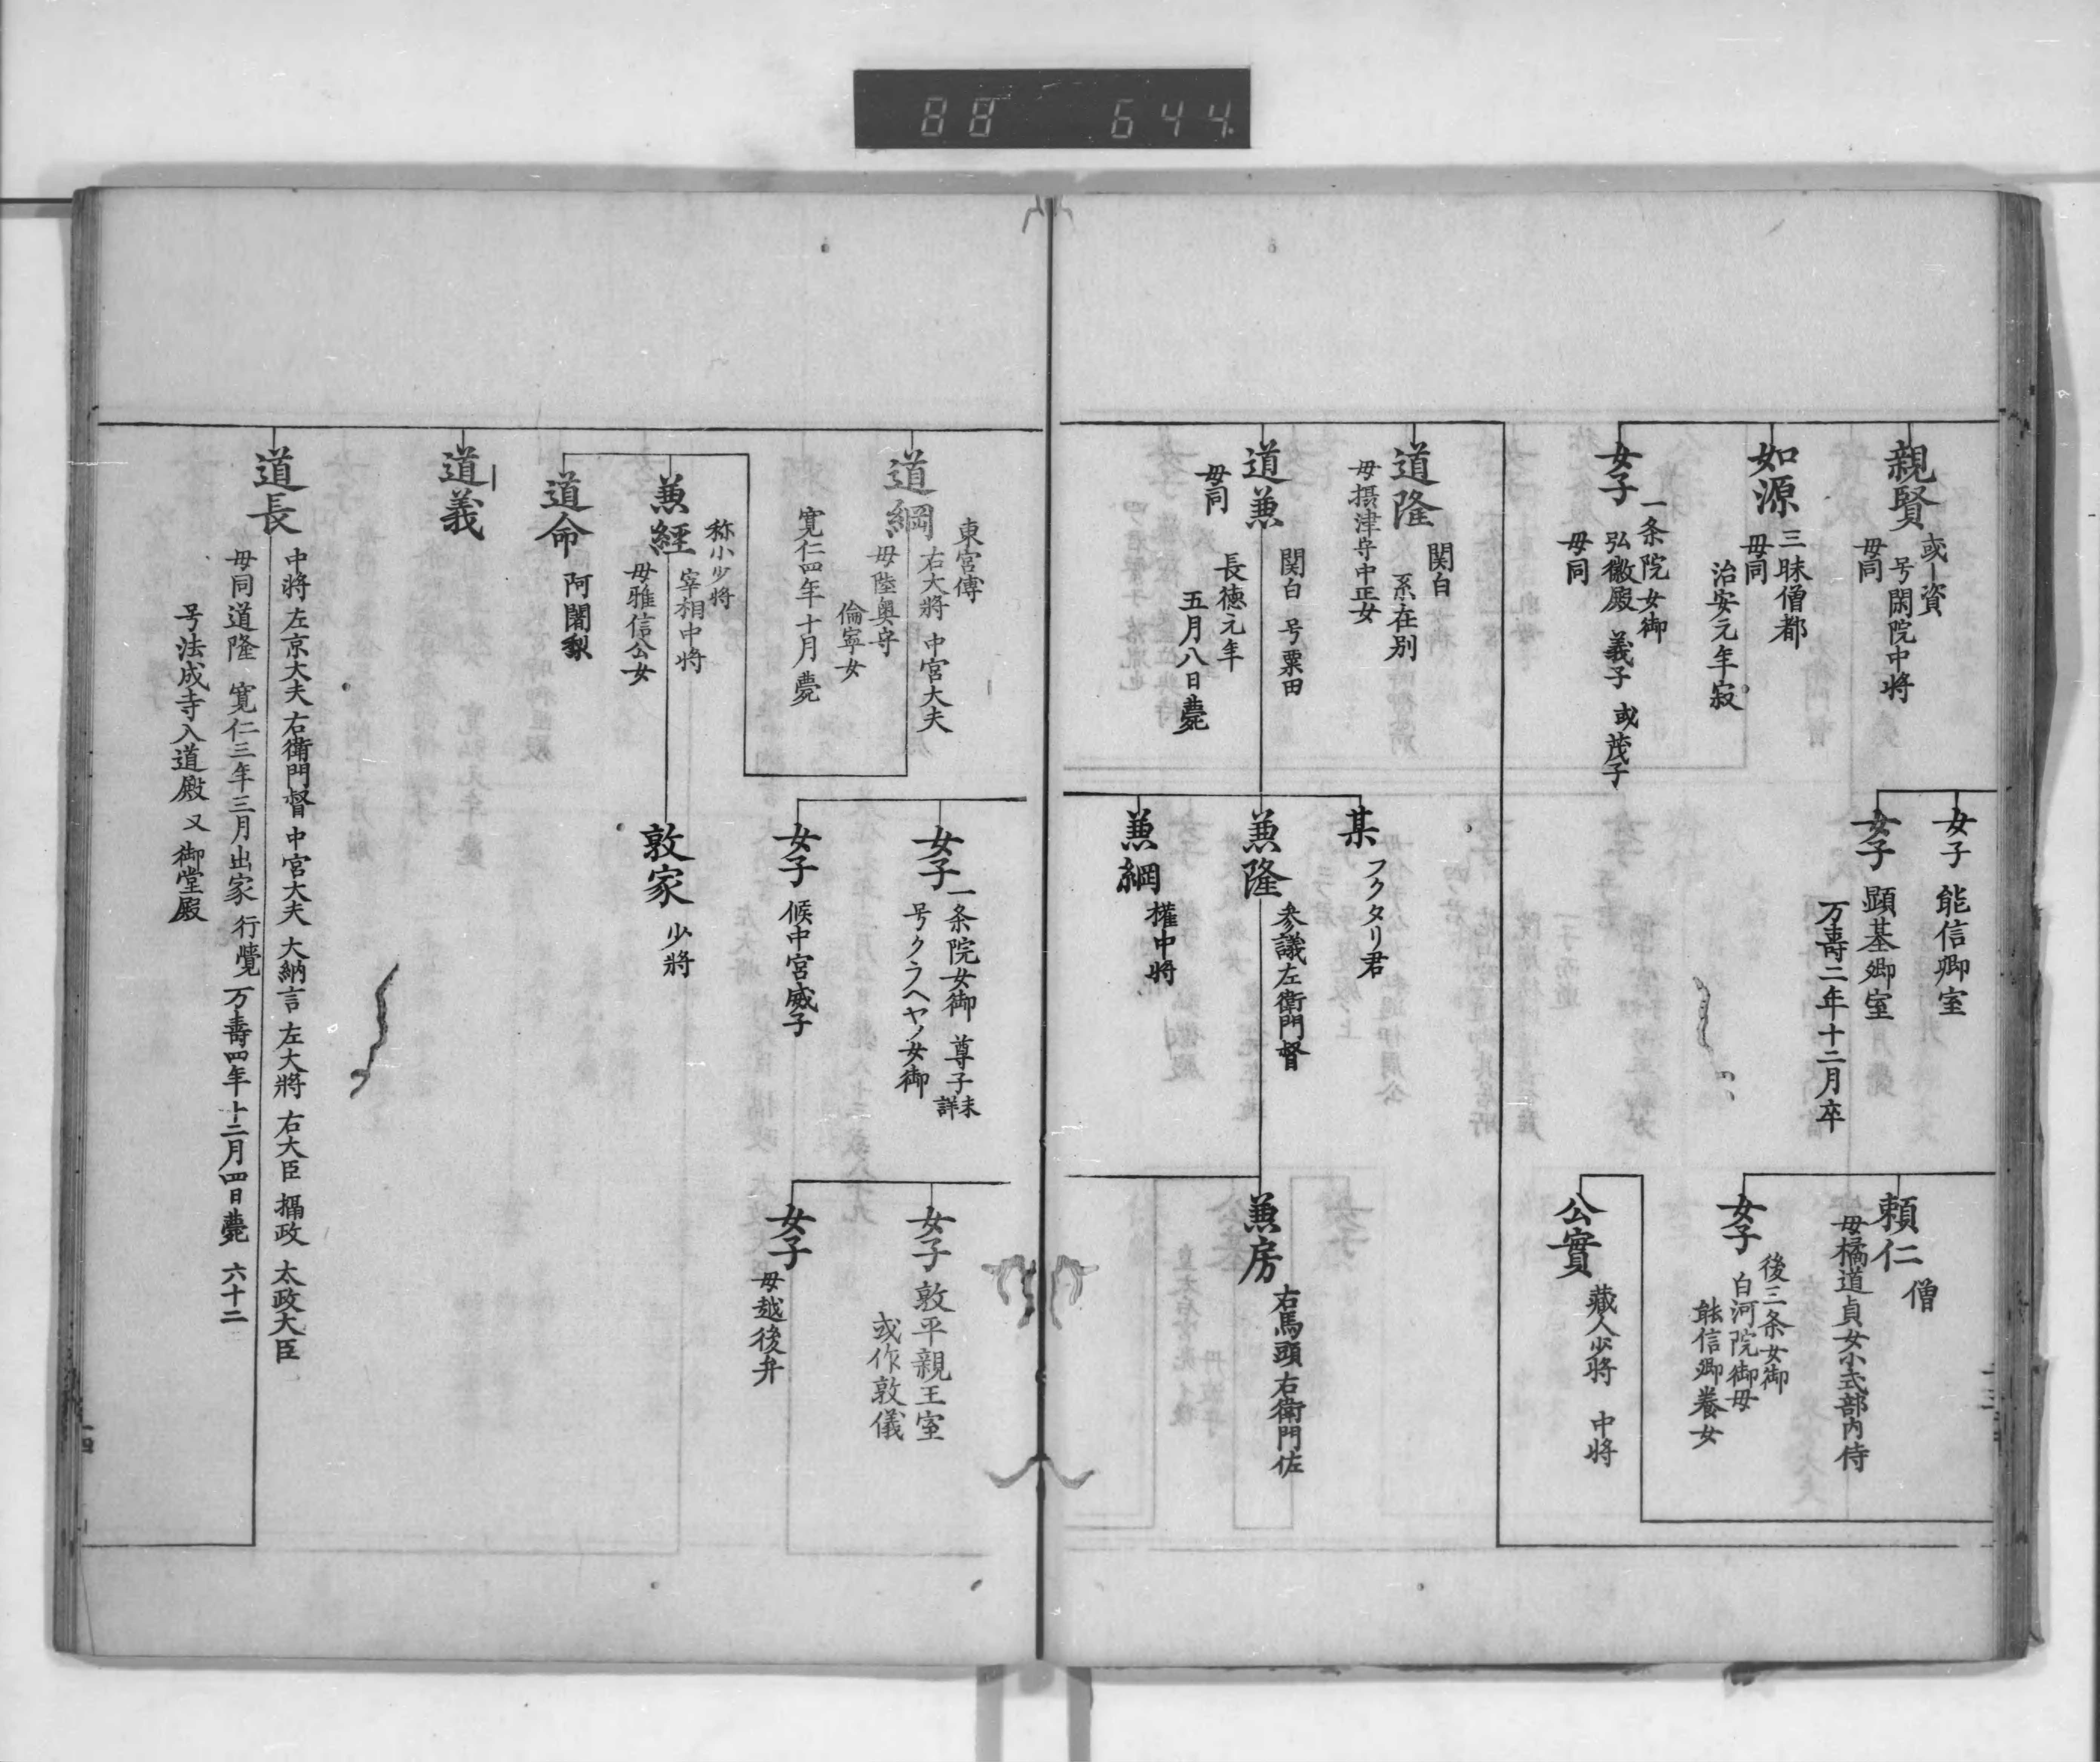 88 644
親賢
或資
号閑院中将
母同
如源
三昧僧都
母同
治安元年寂
女子
一条院女御
弘徽殿 義子 或茂子
母同
道隆
関白
系在別
母摂津守中正女
道兼
母同
関白 号粟田
長徳元年
五月八日薨
女子 能信卿室
女子 顕基卿室
万壽二年十二月卒
某 フクタリ君
兼隆
参議左衛門督
兼綱
權中将
頼仁 僧
母橘道貞女小式部内侍
女子
後三条女御
白河院御母
能信卿養女
公實
藏人少将 中将
兼房
右馬頭右衛門佐
道綱
東宮傅
右大将 中宮大夫
母陸奥守
倫寧女
寛仁四年十月薨
兼經
称小少将
宰相中将
母雅信公女
道命 阿闍梨
道義
道長
中将 左京大夫 右衛門督 中宮大夫 大納言 左大将 右大臣 攝政 太政大臣
母同道隆 寛仁三年三月出家 行覺 万壽四年十二月四日薨 六十二
号法成寺入道殿 又御堂殿
女子
一条院女御 尊子 未詳
号クラヘヤノ女御
女子 候中宮威子
敦家 少将
女子 敦平親王室
或作敦儀
女子
母越後弁